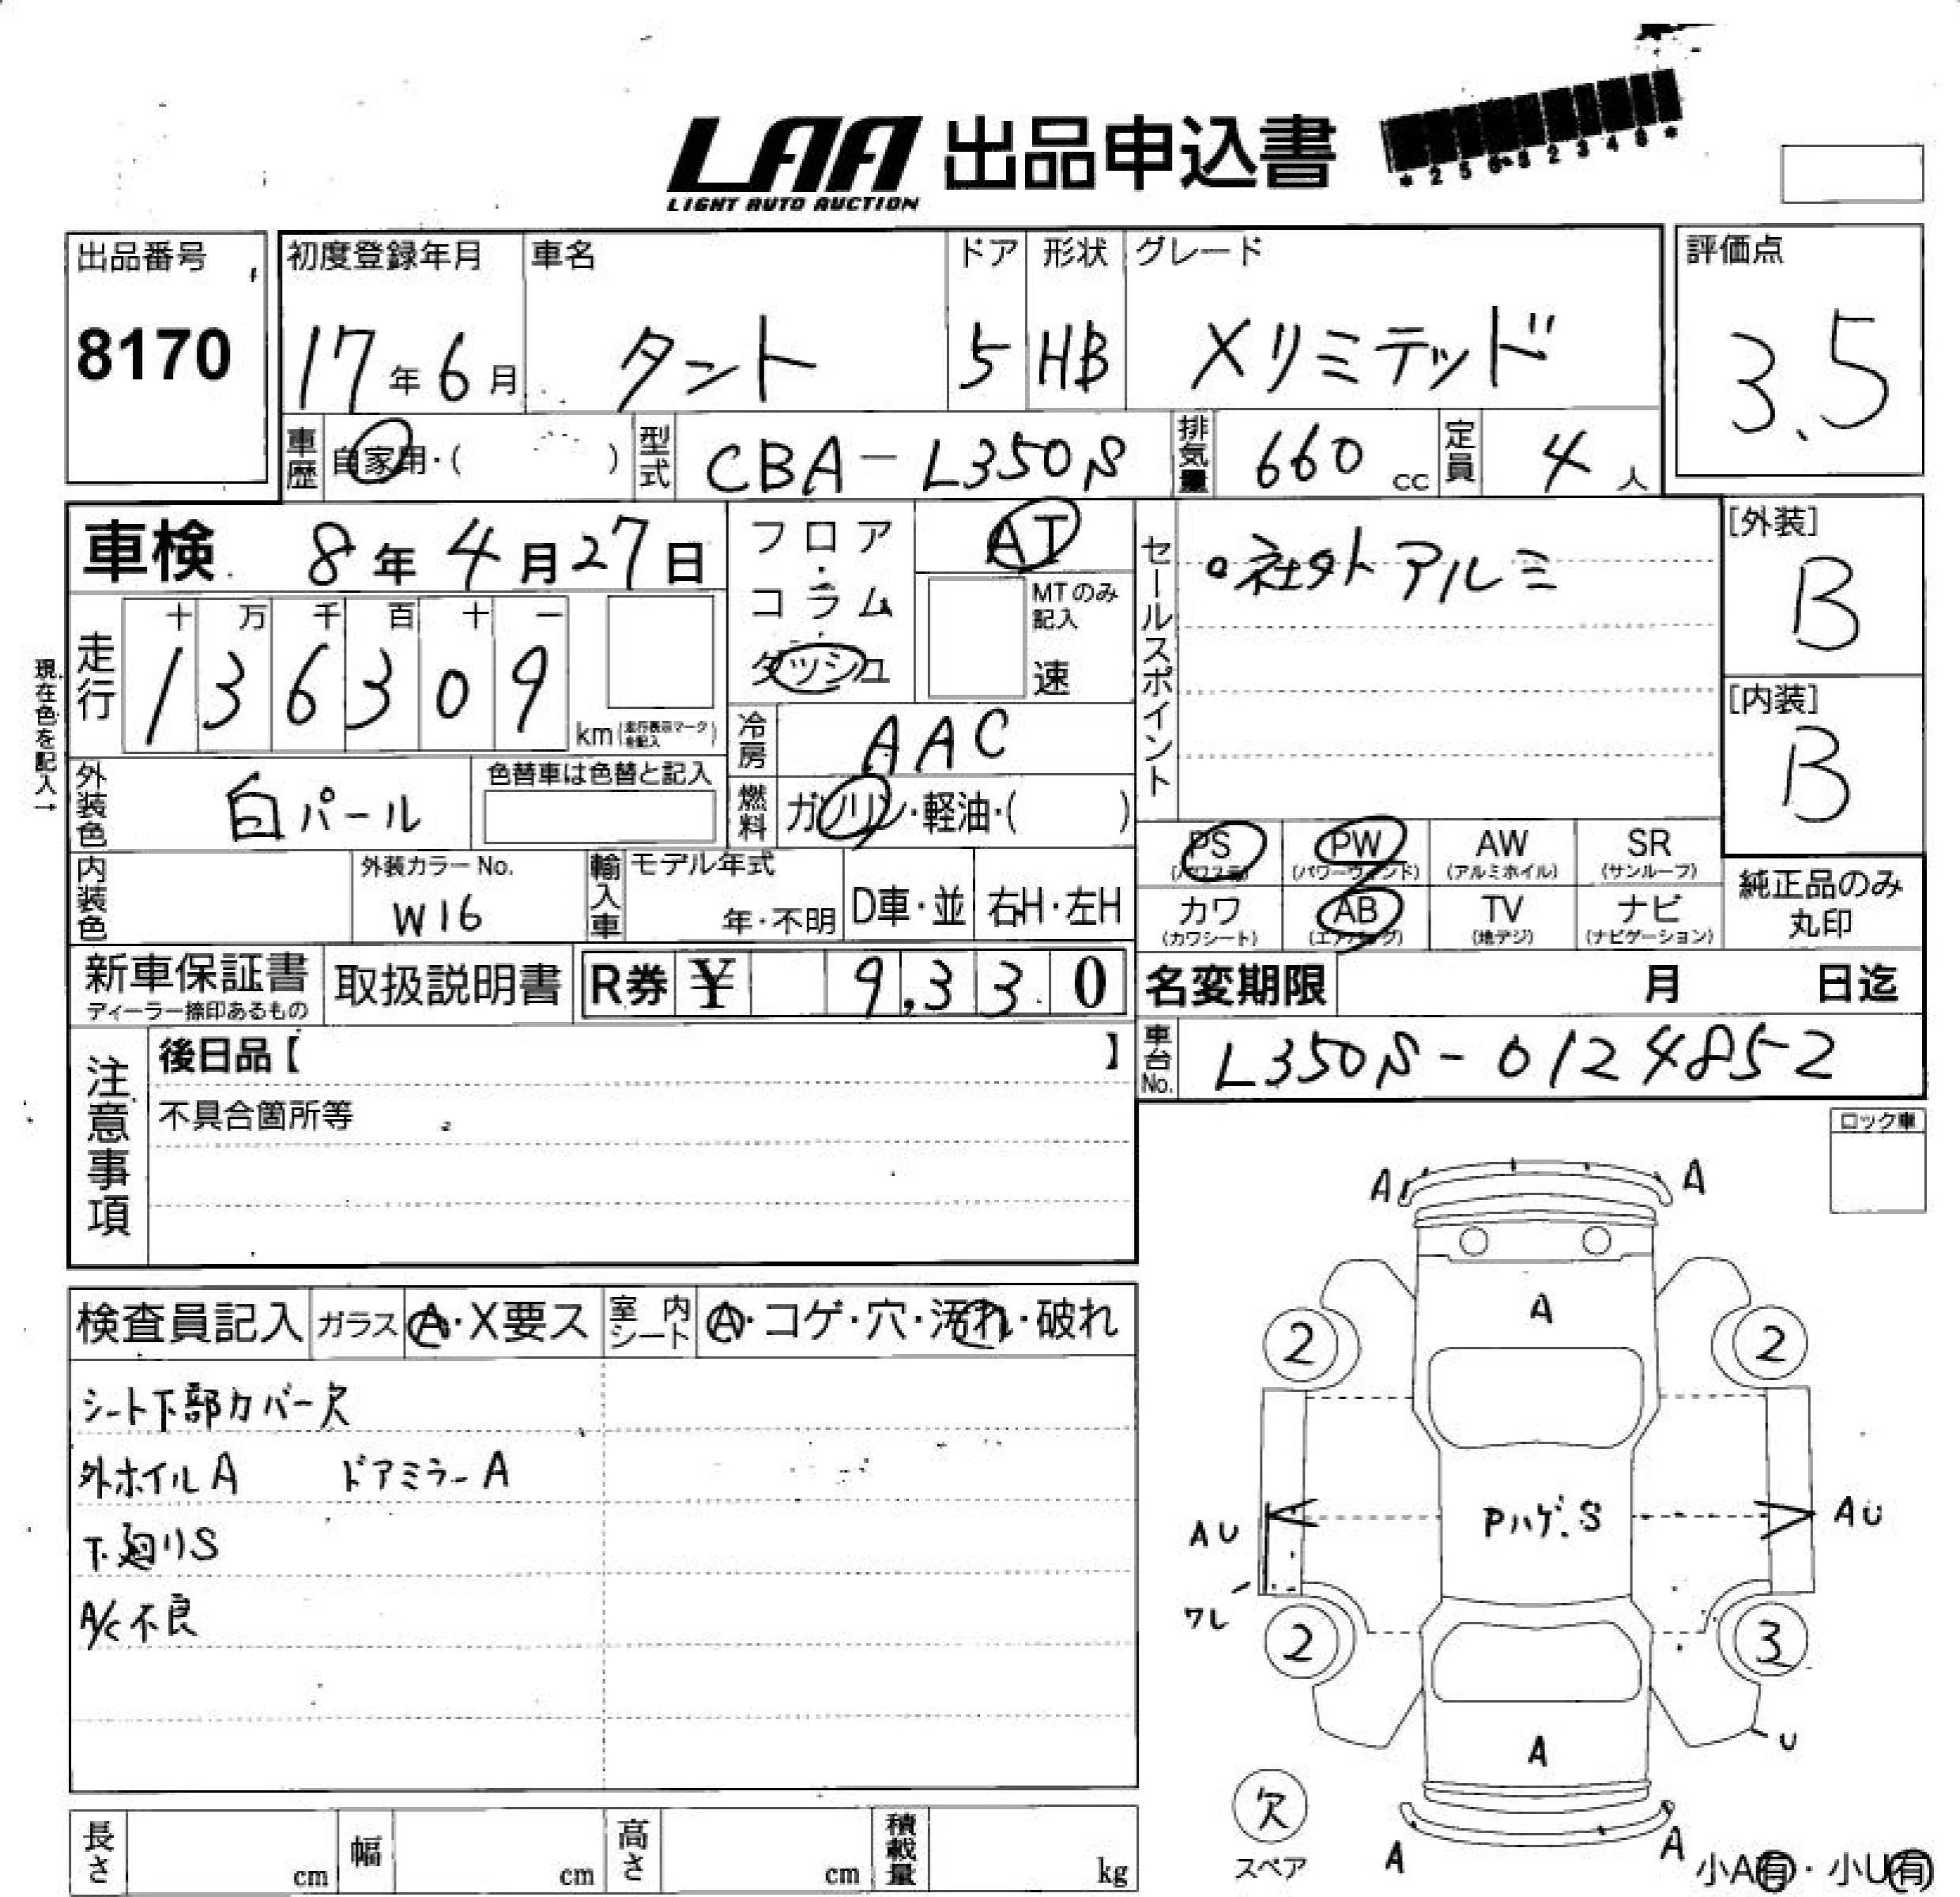 LAA 出品申込書
LIGHT AUTO AUCTION
出品番号 初度登録年月 車名 ドア 形状 グレード 評価点
8170 17年6月 タント 5 HB Xリミテッド 3.5
車歴 自家用・( ) 型式 CBA-L350S 排気量 660 cc 定員 4 人
車検 8年4月27日 フロア・コラム・ダッシュ AT セールスポイント ○社外アルミ [外装] B
MTのみ記入 速
現在色を記入→
走行 十 万 千 百 十 一
1 3 6 3 0 9 km
[内装] B
冷房 AAC
外装色 白パール 色替車は色替と記入 燃料 ガソリン・軽油・( )
PS PW AW SR
(パワステ) (パワーウィンド) (アルミホイル) (サンルーフ)
内装色 外装カラーNo. W16 輸入車 モデル年式 年・不明 D車・並 右H・左H
カワ AB TV ナビ
(カワシート) (エアバッグ) (地デジ) (ナビゲーション)
純正品のみ丸印
新車保証書 取扱説明書 R券 ¥ 9,330 名変期限 月 日迄
ディーラー捺印あるもの
車台No. L350S-0124852
注意事項 後日品【 】
不具合箇所等
ロック車
検査員記入 ガラス A・X要ス 室内シート A・コゲ・穴・汚れ・破れ
シート下部カバー欠
外ホイルA ドアミラーA
下廻りS
A/C不良
A A
A
2 2
AU PハゲS AU
ワレ
2 3
A U
欠
スペア
A A
小A有・小U有
長さ cm 幅 cm 高さ cm 積載量 kg